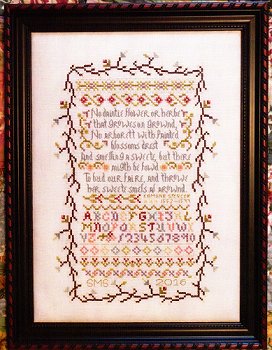 No daintie flower or herbe
that growes on grownd,
No arborett with painted
blossoms drest
And smelling sweete, but there
might be fownd
To bud out faire, and throwe
her sweete smels al arownd.
EDMUND SPENSER
ABCDEFGHIJKL
1234567890
SMS 2016